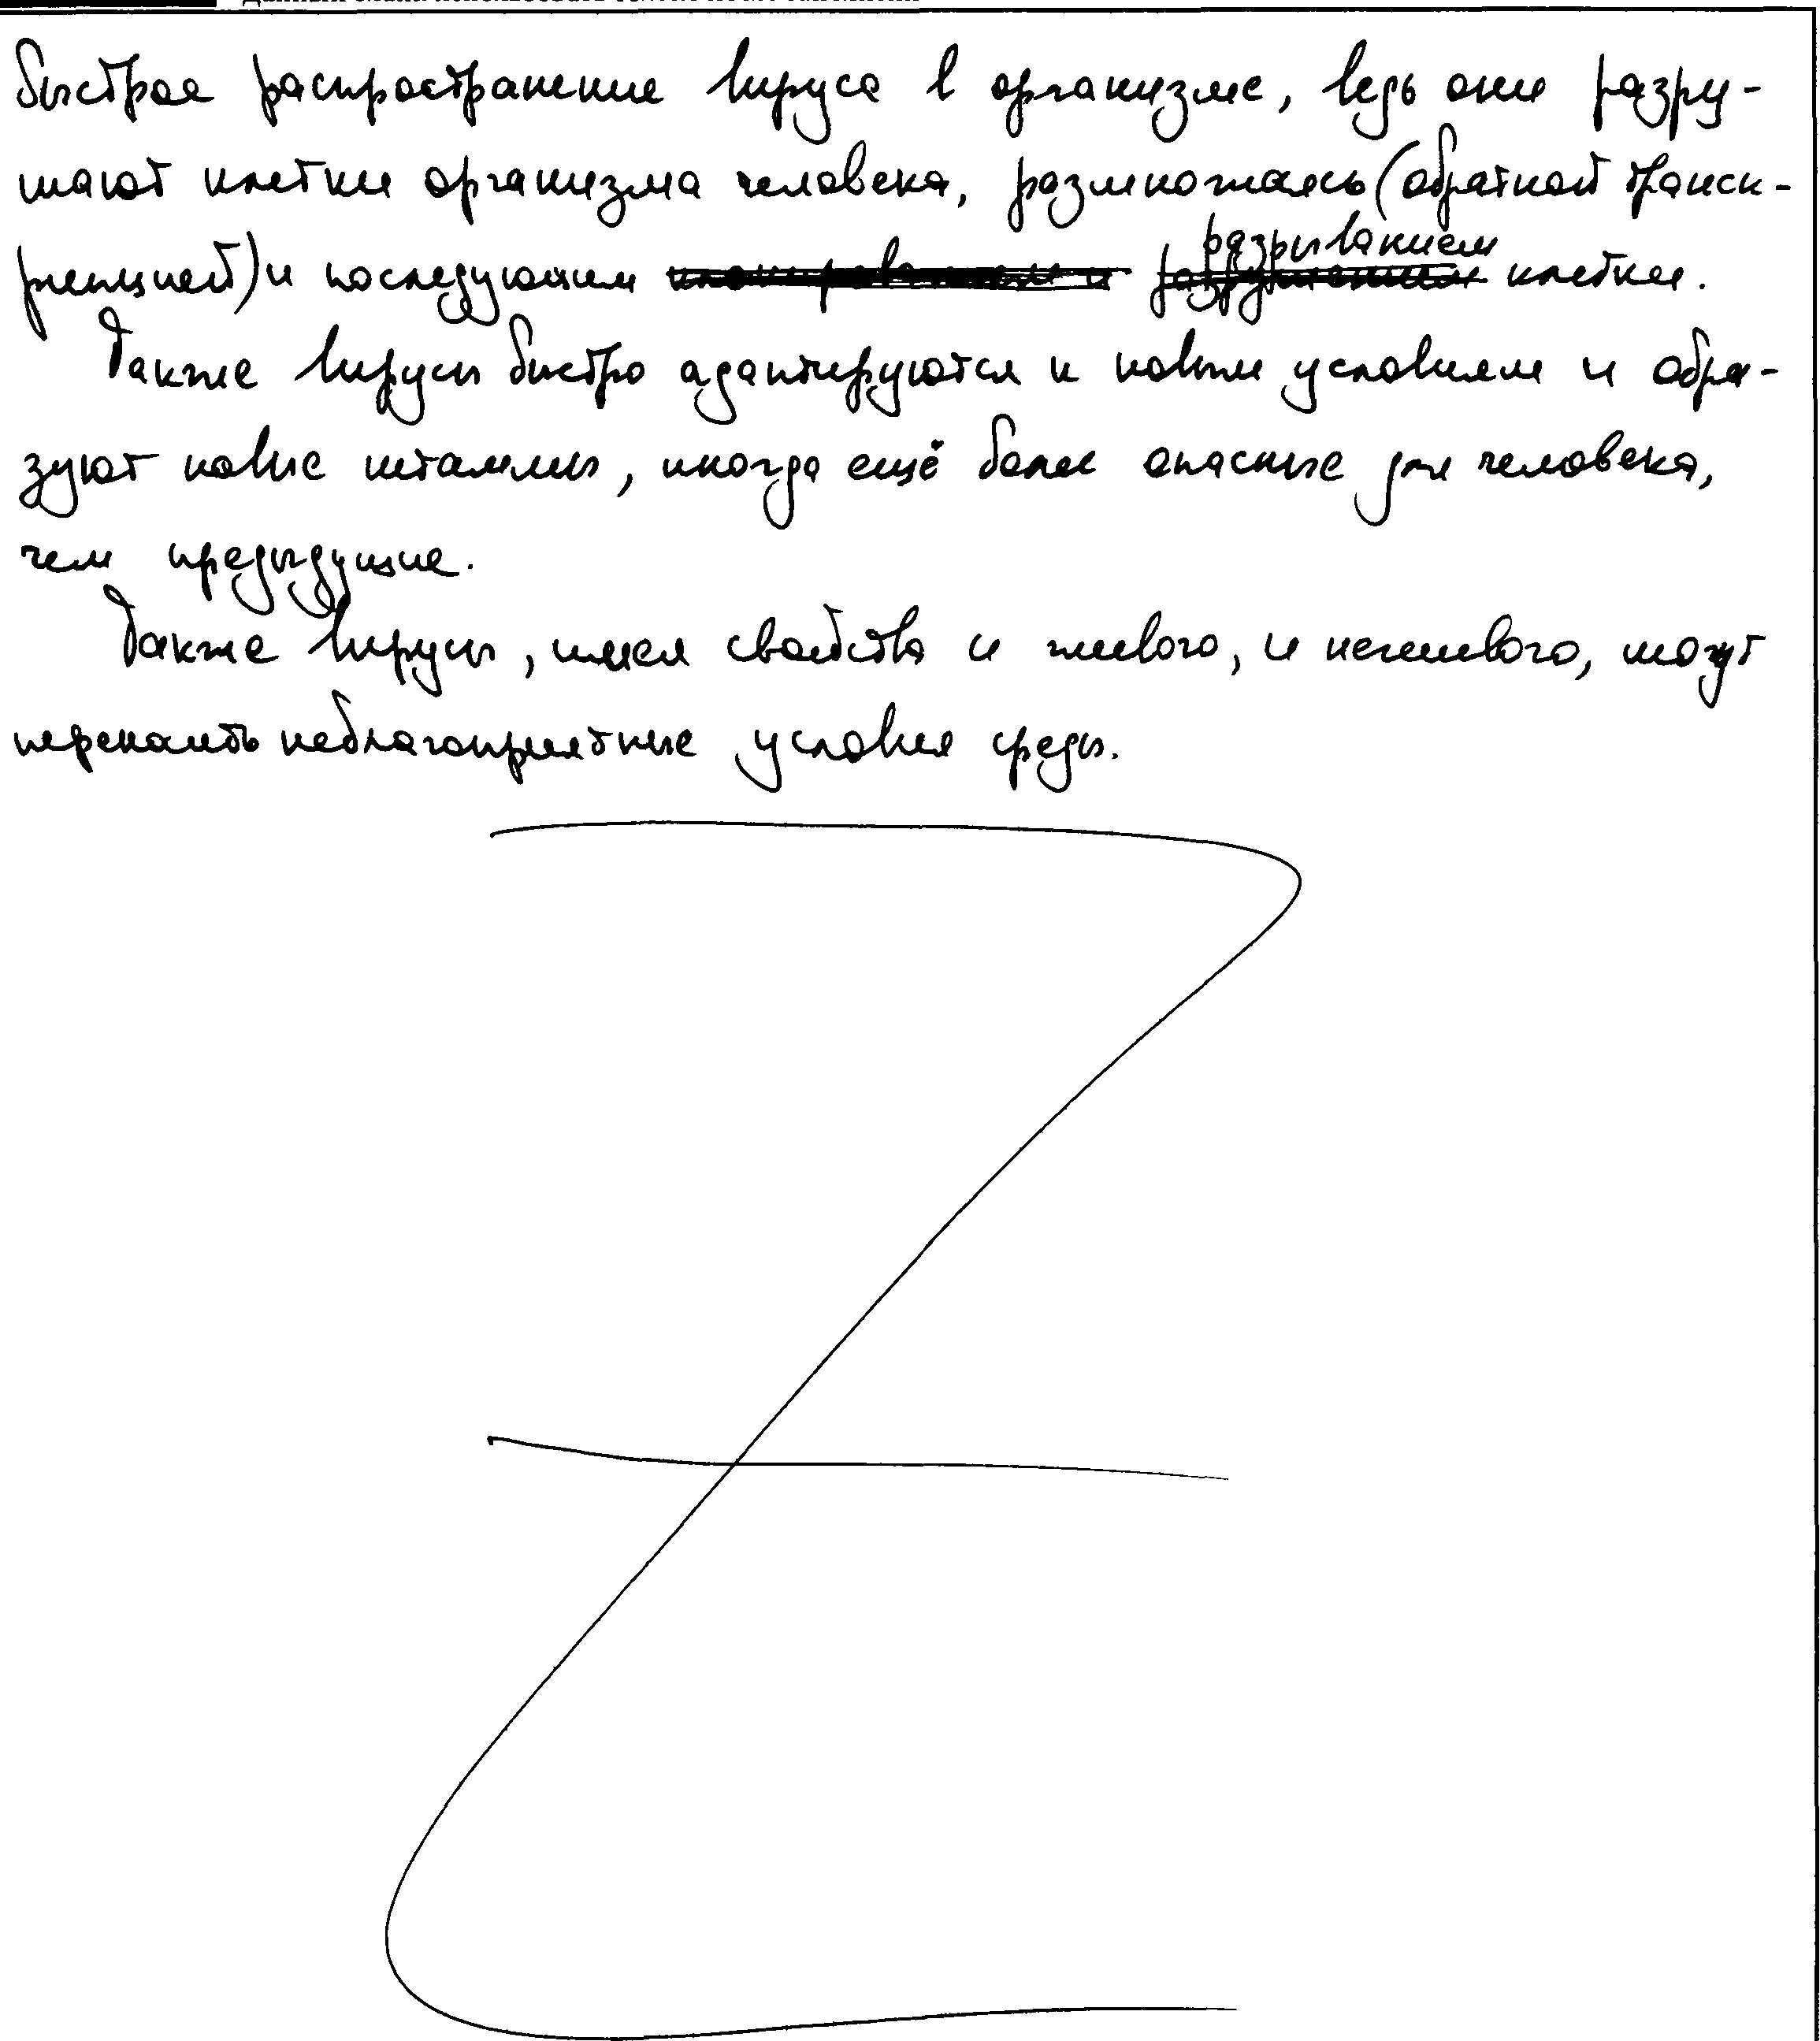 быстрое распространение вируса в организме, ведь они разру-
шают клетки организма человека, размножаясь (обратной транск-
рипцией) и последующим разрыванием клетки.
Также вирусы быстро адаптируются к новым условиям и обра-
зуют новые штаммы, иногда ещё более опасные для человека,
чем предыдущие.
Также вирусы, имея свойства и живого, и неживого, могут
пережить неблагоприятные условия среды.